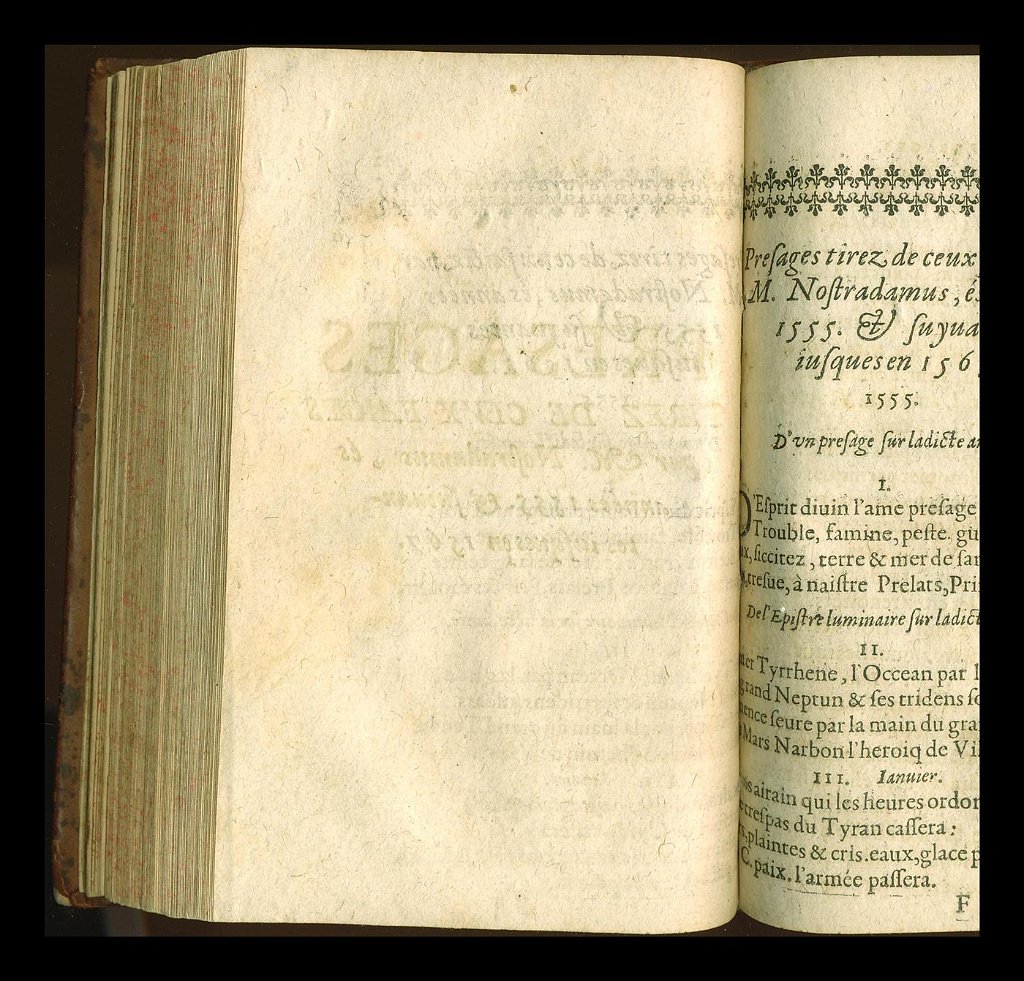 Preſages tirez de ceux
M. Noſtradamus, és
1555. & ſuyua
iuſques en 156
1555.
D'vn preſage ſur ladicte an
I.
D'Eſprit diuin l'ame preſage
Trouble, famine, peſte. gu
ux, ſiccitez, terre & mer de ſan
treſue, à naiſtre Prelats, Prin
De l'Epiſtre luminaire ſur ladict
II.
mer Tyrrhene, l'Occean par l
grand Neptun & ſes tridens ſo
ence ſeure par la main du gra
Mars Narbon l'heroiq de Vi
III. Ianuier.
os airain qui les heures ordon
treſpas du Tyran caſſera:
plaintes & cris. eaux, glace p
C. paix. l'armée paſſera.
F